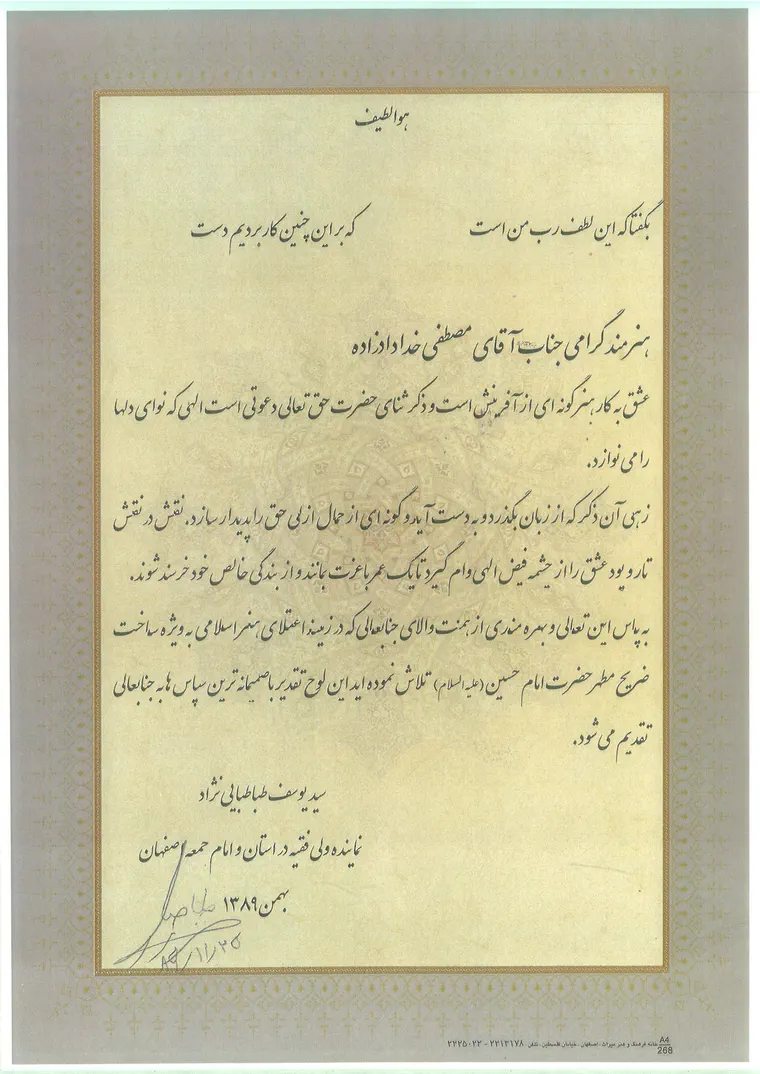 هوالطیف
بگفتا که این لطف رب من است که بر این چنین کار بردیم دست
هنرمند گرامی جناب آقای مصطفی خدادادزاده
عشق به کار هنر گونه ای از آفرینش است و ذکر ثنای حضرت حق تعالی دعوتی است الهی که نوای دلها
را می نوازد.
زهی آن ذکر که از زبان بگذرد و به دست آید و گونه ای از جمال ازلی حق را پدیدار سازد. نقش در نقش
تار و پود عشق را از چشمه فیض الهی وام گیرد تا یک عمر با عزت بمانند و از بندگی خالص خود خرسند شوند.
به پاس این تعالی و بهره مندی از همت والای جنابعالی که در زمینه اعتلای هنر اسلامی به ویژه ساخت
ضریح مطهر حضرت امام حسین (علیه السلام) تلاش نموده اید این لوح تقدیر با صمیمانه ترین سپاس ها به جنابعالی
تقدیم می شود.
سید یوسف طباطبایی نژاد
نماینده ولی فقیه در استان و امام جمعه اصفهان
بهمن ۱۳۸۹
۸۹/۱۱/۲۵
خانه فرهنگ و هنر میراث - اصفهان - خیابان فلسطین - تلفن ۲۲۱۳۱۷۸ - ۲۲۲۵۰۲۲
A4
266